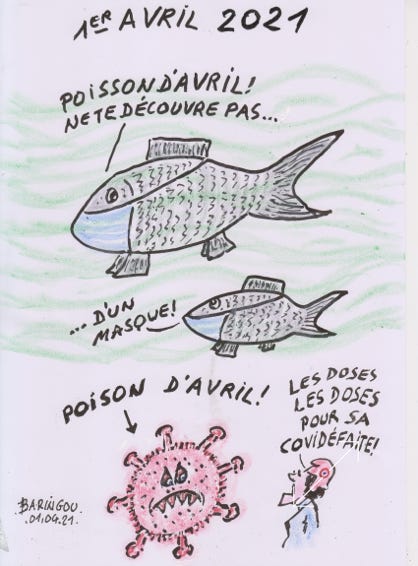 1ER AVRIL 2021
POISSON D'AVRIL!
NE TE DÉCOUVRE PAS...
...D'UN
MASQUE!
POISON D'AVRIL!
LES DOSES
LES DOSES
POUR SA
COVIDÉFAITE!
BARINGOU
.01.04.21.